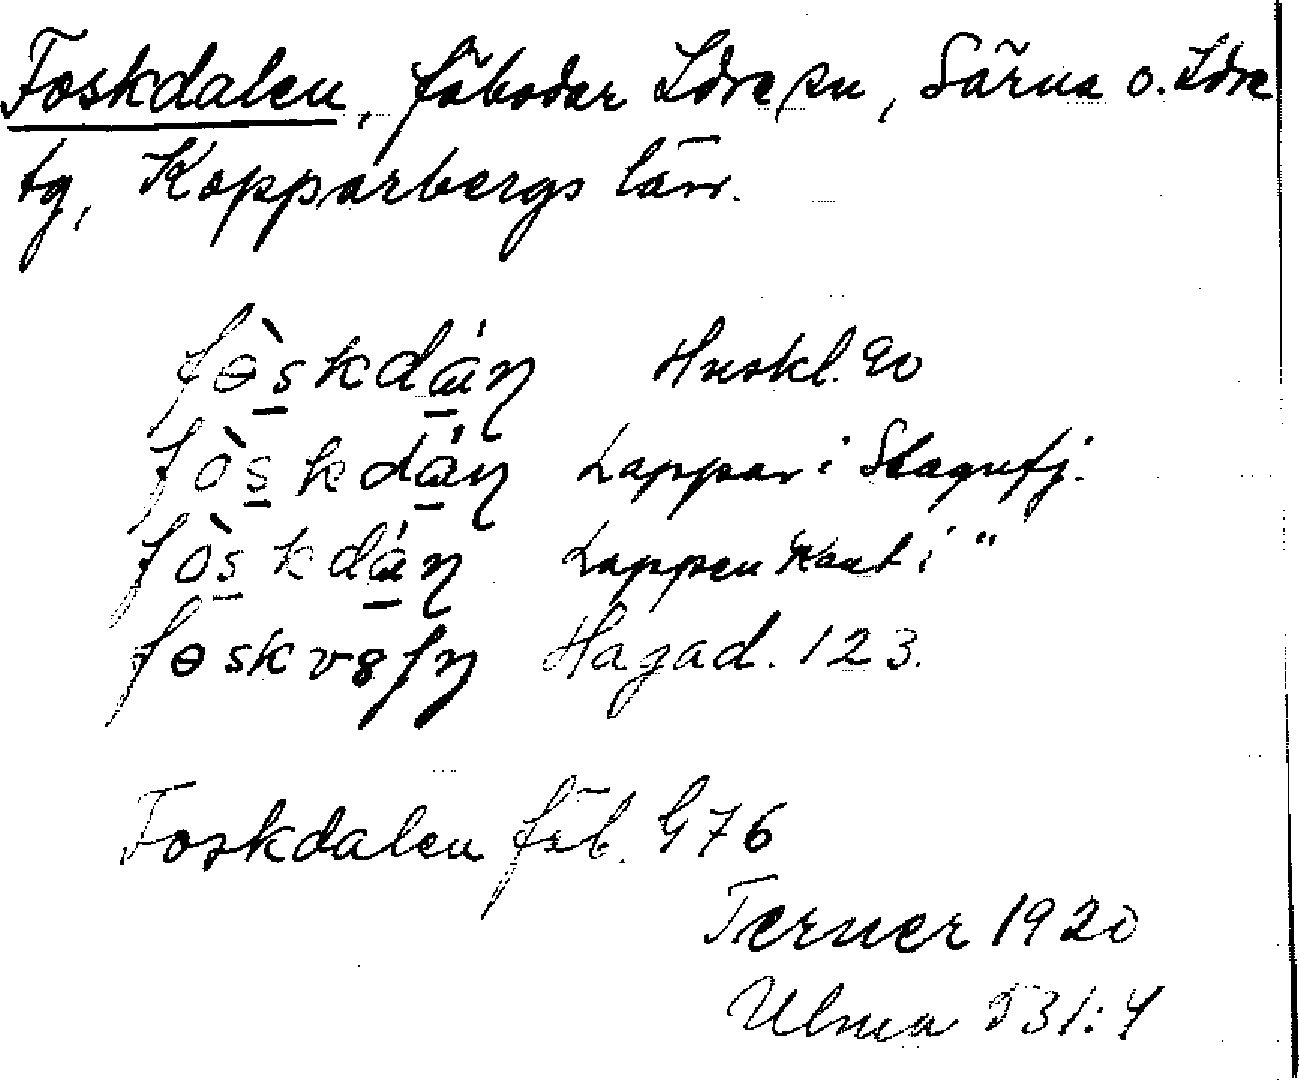 Foskdalen, fäbodar Idre sn, Särna o. Idre
tg, Kopparbergs län.
fɵ̀skdáŋ Huskl. 20
fòskdáŋ Lappar i Städjesfj.
fòskdáŋ Lappen Kant i "
fɵskv Hagad. 123.
Foskdalen fäb. G76
Terner 1920
Ulma 531:4